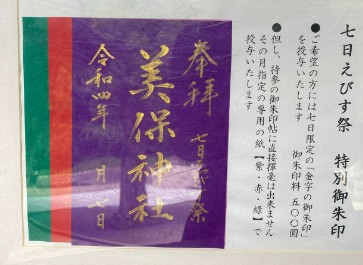 七日えびす祭 特別御朱印
●ご希望の方には七日限定の「金字の御朱印」
を授与いたします
御朱印料 五〇〇円
●但し、持参の御朱印帖に直接揮毫は出来ません
その月指定の専用の紙【紫・赤・緑】で
授与いたします
奉拝
七日えびす祭
美保神社
令和四年 月七日